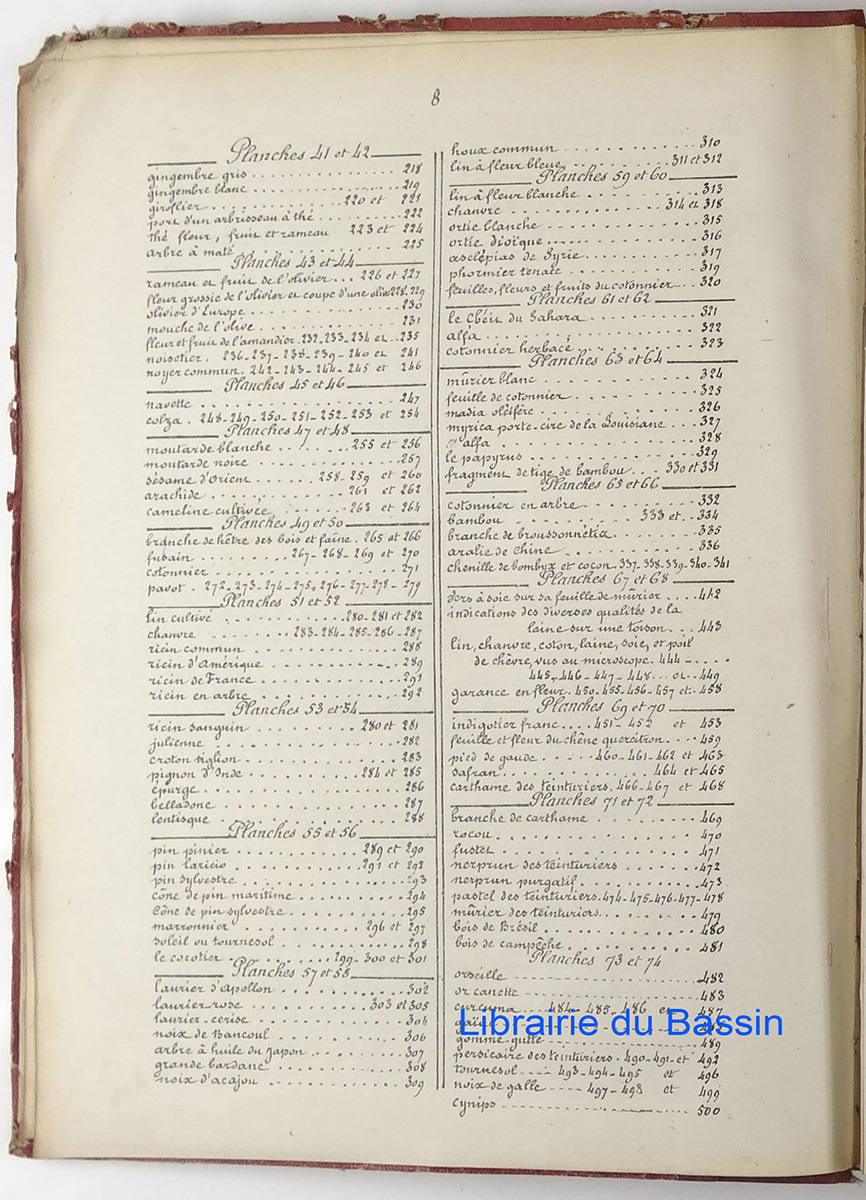 8
Planches 41 et 42
gingembre gris 218
gingembre blanc 219
giroflier 220 et 221
port d'un arbrisseau à thé 222
thé fleur, fruit et rameau 223 et 224
arbre à maté 225
Planches 43 et 44
rameau et fruit de l'olivier 226 et 227
fleur grossie de l'olivier et coupe d'une olive 228-229
olivier d'Europe 230
mouche de l'olive 231
fleur et fruit de l'amandier 232-233-234 et 235
noisetier 236-237-238-239-240 et 241
noyer commun 242-243-244-245 et 246
Planches 45 et 46
navette 247
colza 248-249-250-251-252-253 et 254
Planches 47 et 48
moutarde blanche 255 et 256
moutarde noire 257
sésame d'Orient 258-259 et 260
arachide 261 et 262
cameline cultivée 263 et 264
Planches 49 et 50
branche de hêtre des bois et faîne 265 et 266
fusain 267-268-269 et 270
cotonnier 271
pavot 272-273-274-275-276-277-278-279
Planches 51 et 52
lin cultivé 280-281 et 282
chanvre 283-284-285-286-287
ricin commun 288
ricin d'Amérique 289
ricin de France 291
ricin en arbre 292
Planches 53 et 54
ricin sanguin 280 et 281
julienne 282
croton tiglion 283
pignon d'Inde 284 et 285
épurge 286
belladone 287
lentisque 288
Planches 55 et 56
pin pinier 289 et 290
pin laricio 291 et 292
pin sylvestre 293
cône de pin maritime 294
cône de pin sylvestre 295
marronnier 296 et 297
soleil ou tournesol 298
le cocotier 299-300 et 301
Planches 57 et 58
laurier d'apollon 302
laurier-rose 303 et 305
laurier-cerise 304
noix de Bancoul 306
arbre à huile du Japon 307
grande bardane 308
noix d'acajou 309
houx commun 310
lin à fleur bleue 311 et 312
Planches 59 et 60
lin à fleur blanche 313
chanvre 314 et 318
ortie blanche 315
ortie dioïque 316
asclépias de Syrie 317
phormier tenace 319
feuilles, fleurs et fruits du cotonnier 320
Planches 61 et 62
le Chéir du Sahara 321
alfa 322
cotonnier herbacé 323
Planches 63 et 64
mûrier blanc 324
feuille de cotonnier 325
madia oléifère 326
myrica porte-cire de la Louisiane 327
alfa 328
le papyrus 329
fragment de tige de bambou 330 et 331
Planches 65 et 66
cotonnier en arbre 332
bambou 333 et 334
branche de broussonnétia 335
aralie de Chine 336
chenille de bombyx et cocon 337-338-339-340-341
Planches 67 et 68
vers à soie sur sa feuille de mûrier 442
indications des diverses qualités de la
laine sur une toison 443
lin, chanvre, coton, laine, soie, et poil
de chèvre, vus au microscope 444-
445-446-447-448 et 449
garance en fleur 450-455-456-457 et 458
Planches 69 et 70
indigotier franc 451-452 et 453
feuille et fleur du chêne quercitron 459
pied de gaude 460-461-462 et 463
safran 464 et 465
carthame des teinturiers 466-467 et 468
Planches 71 et 72
branche de carthame 469
rocou 470
fustet 471
nerprun des teinturiers 472
nerprun purgatif 473
pastel des teinturiers 474-475-476-477-478
mûrier des teinturiers 479
bois de Brésil 480
bois de campêche 481
Planches 73 et 74
orseille 482
orcanette 483
curcuma 484-485-486 et 487
Librairie du Bassin
gomme-gutte 489
persicaire des teinturiers 490-491 et 492
tournesol 493-494-495 et 496
noix de galle 497-498 et 499
cynips 500